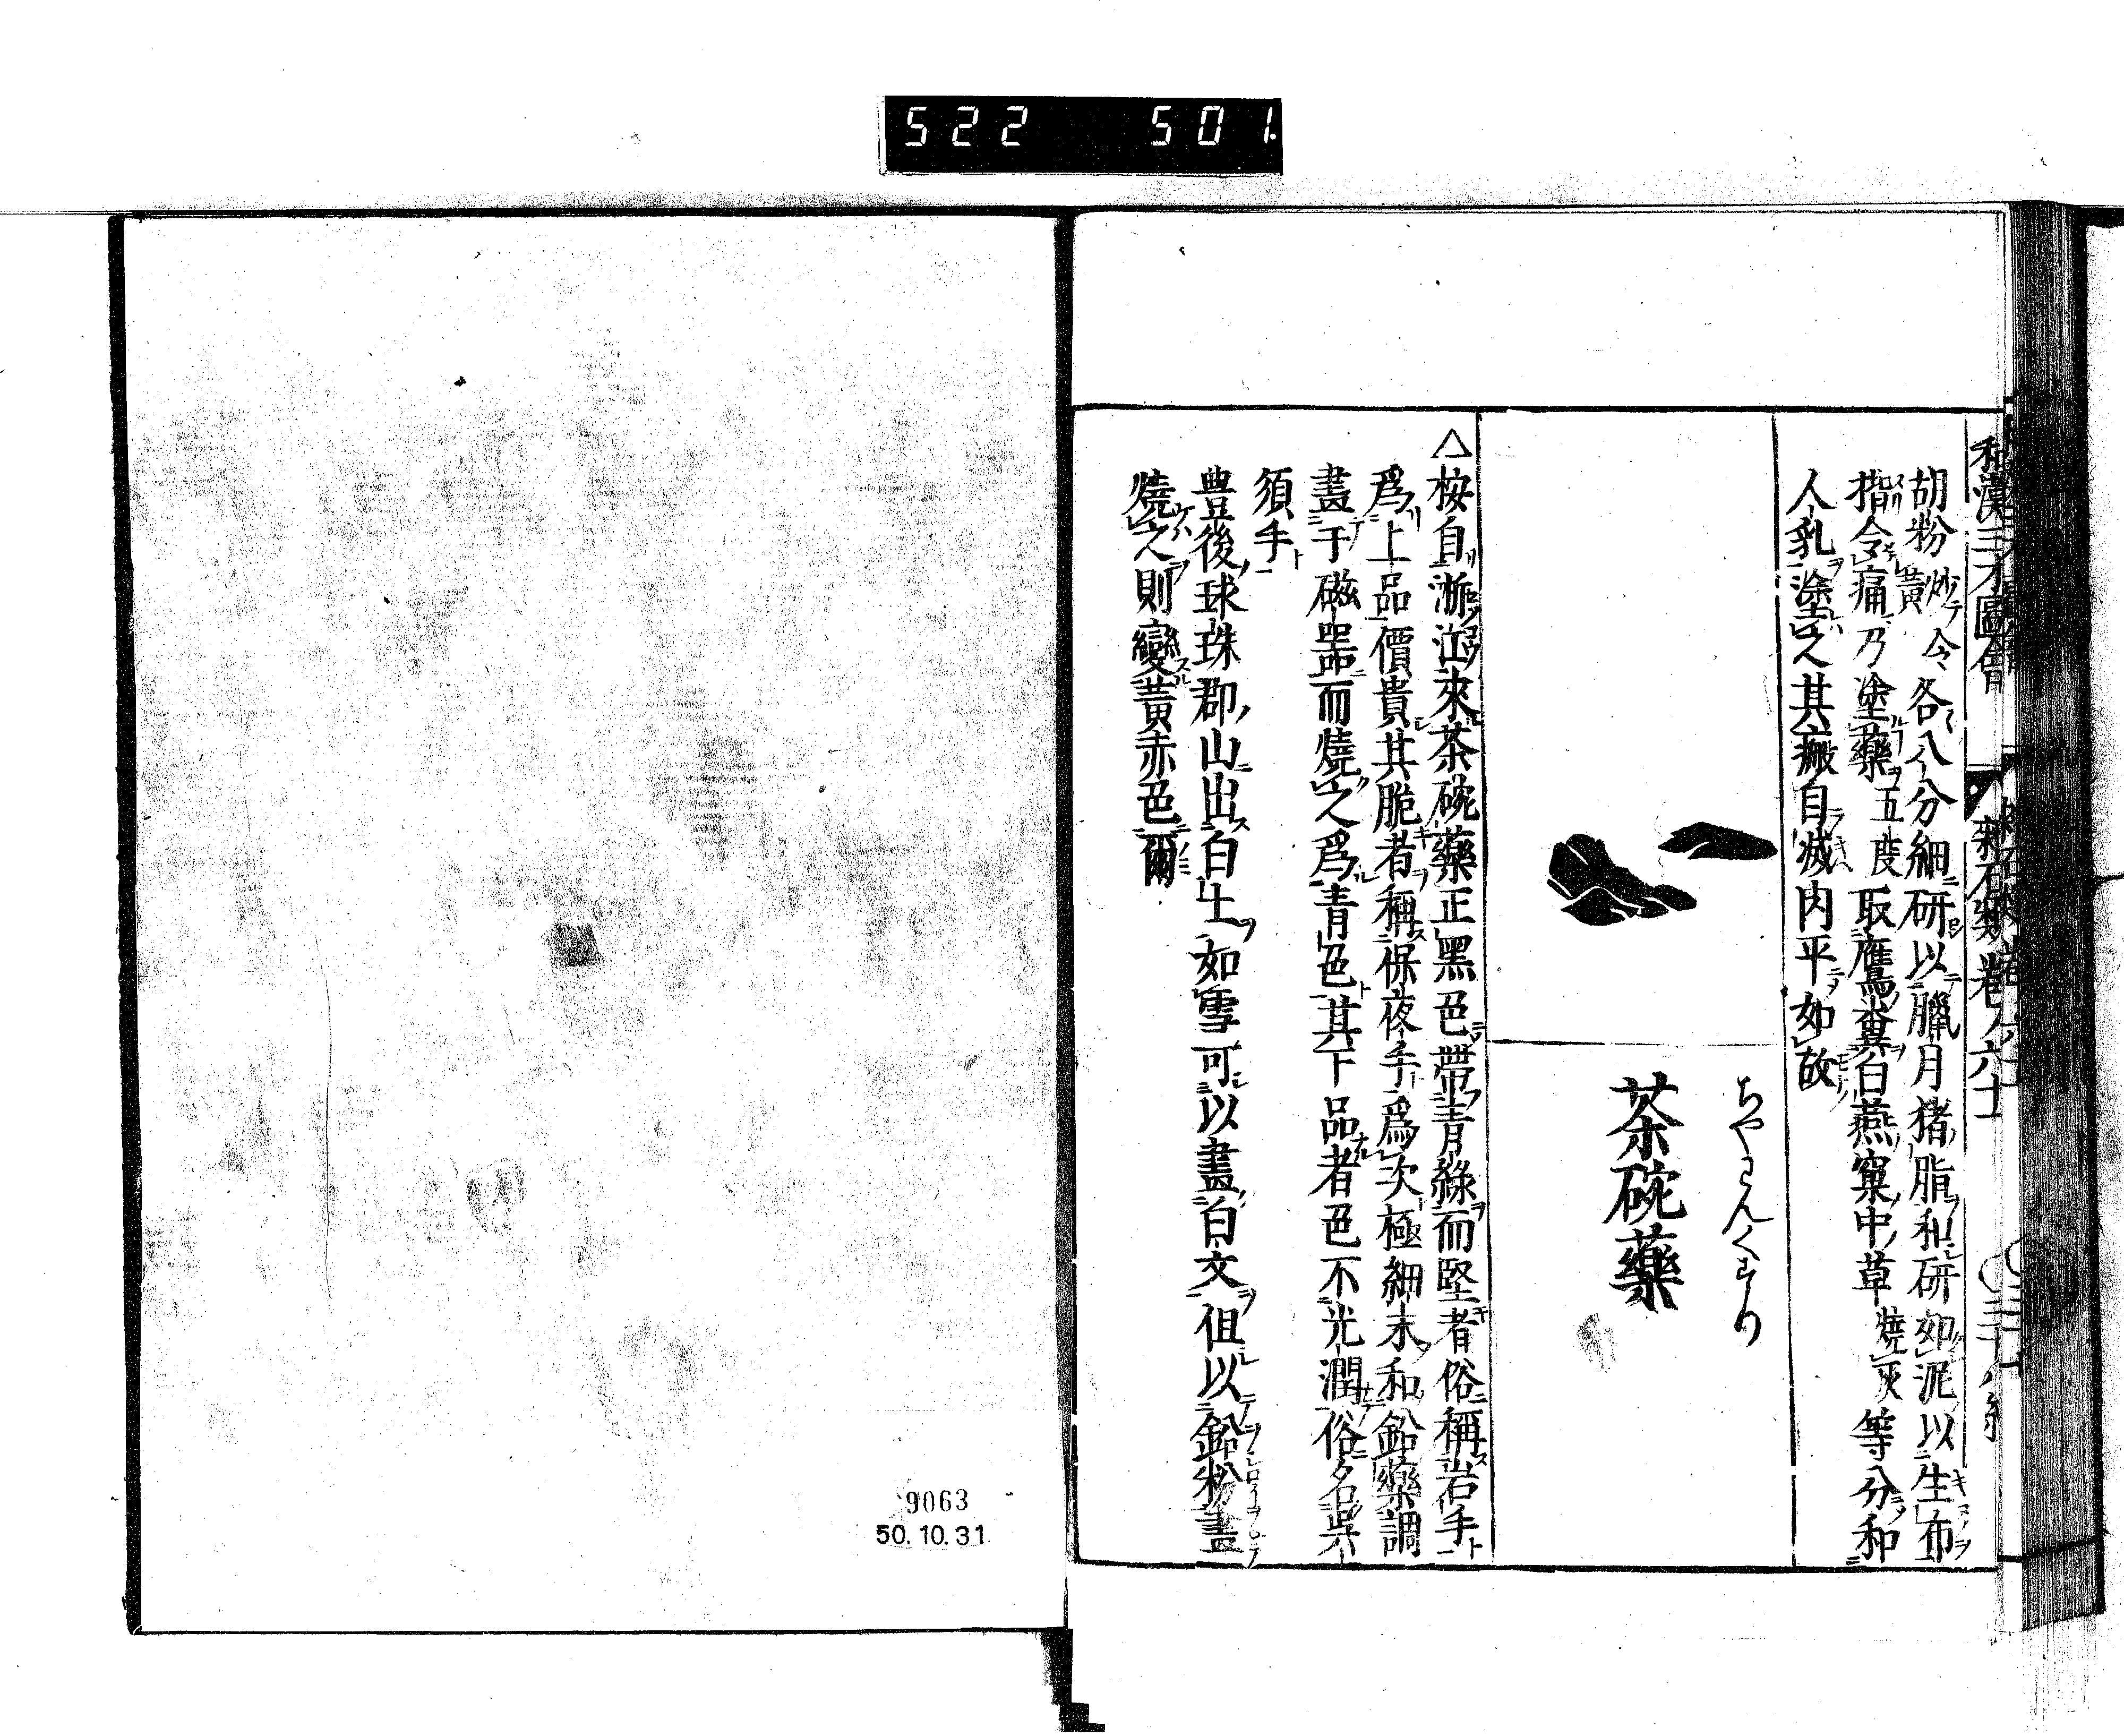 522 501
和漢三才圖會 雜石類 卷ノ六十一
胡粉炒テ黃 令各八分細研以臘月猪脂和研如泥以生布
揩令痛乃塗藥五度取鷹糞白燕窠中草燒灰等分和
人乳塗之其瘢自滅肉平如故
ちやわんくすり
茶碗藥
△按自浙江來茶碗藥正黑色帶青綠而堅者俗稱岩手
爲上品價貴其脆者稱保夜手爲次極細末和鉛藥調
畫于磁噐而燒之爲青色其下品者色不光潤俗名呉
須手
豊後球珠郡山出白土如雪可以畫白文但以鉛粉畫
燒之則變黃赤色爾
9063
50.10.31